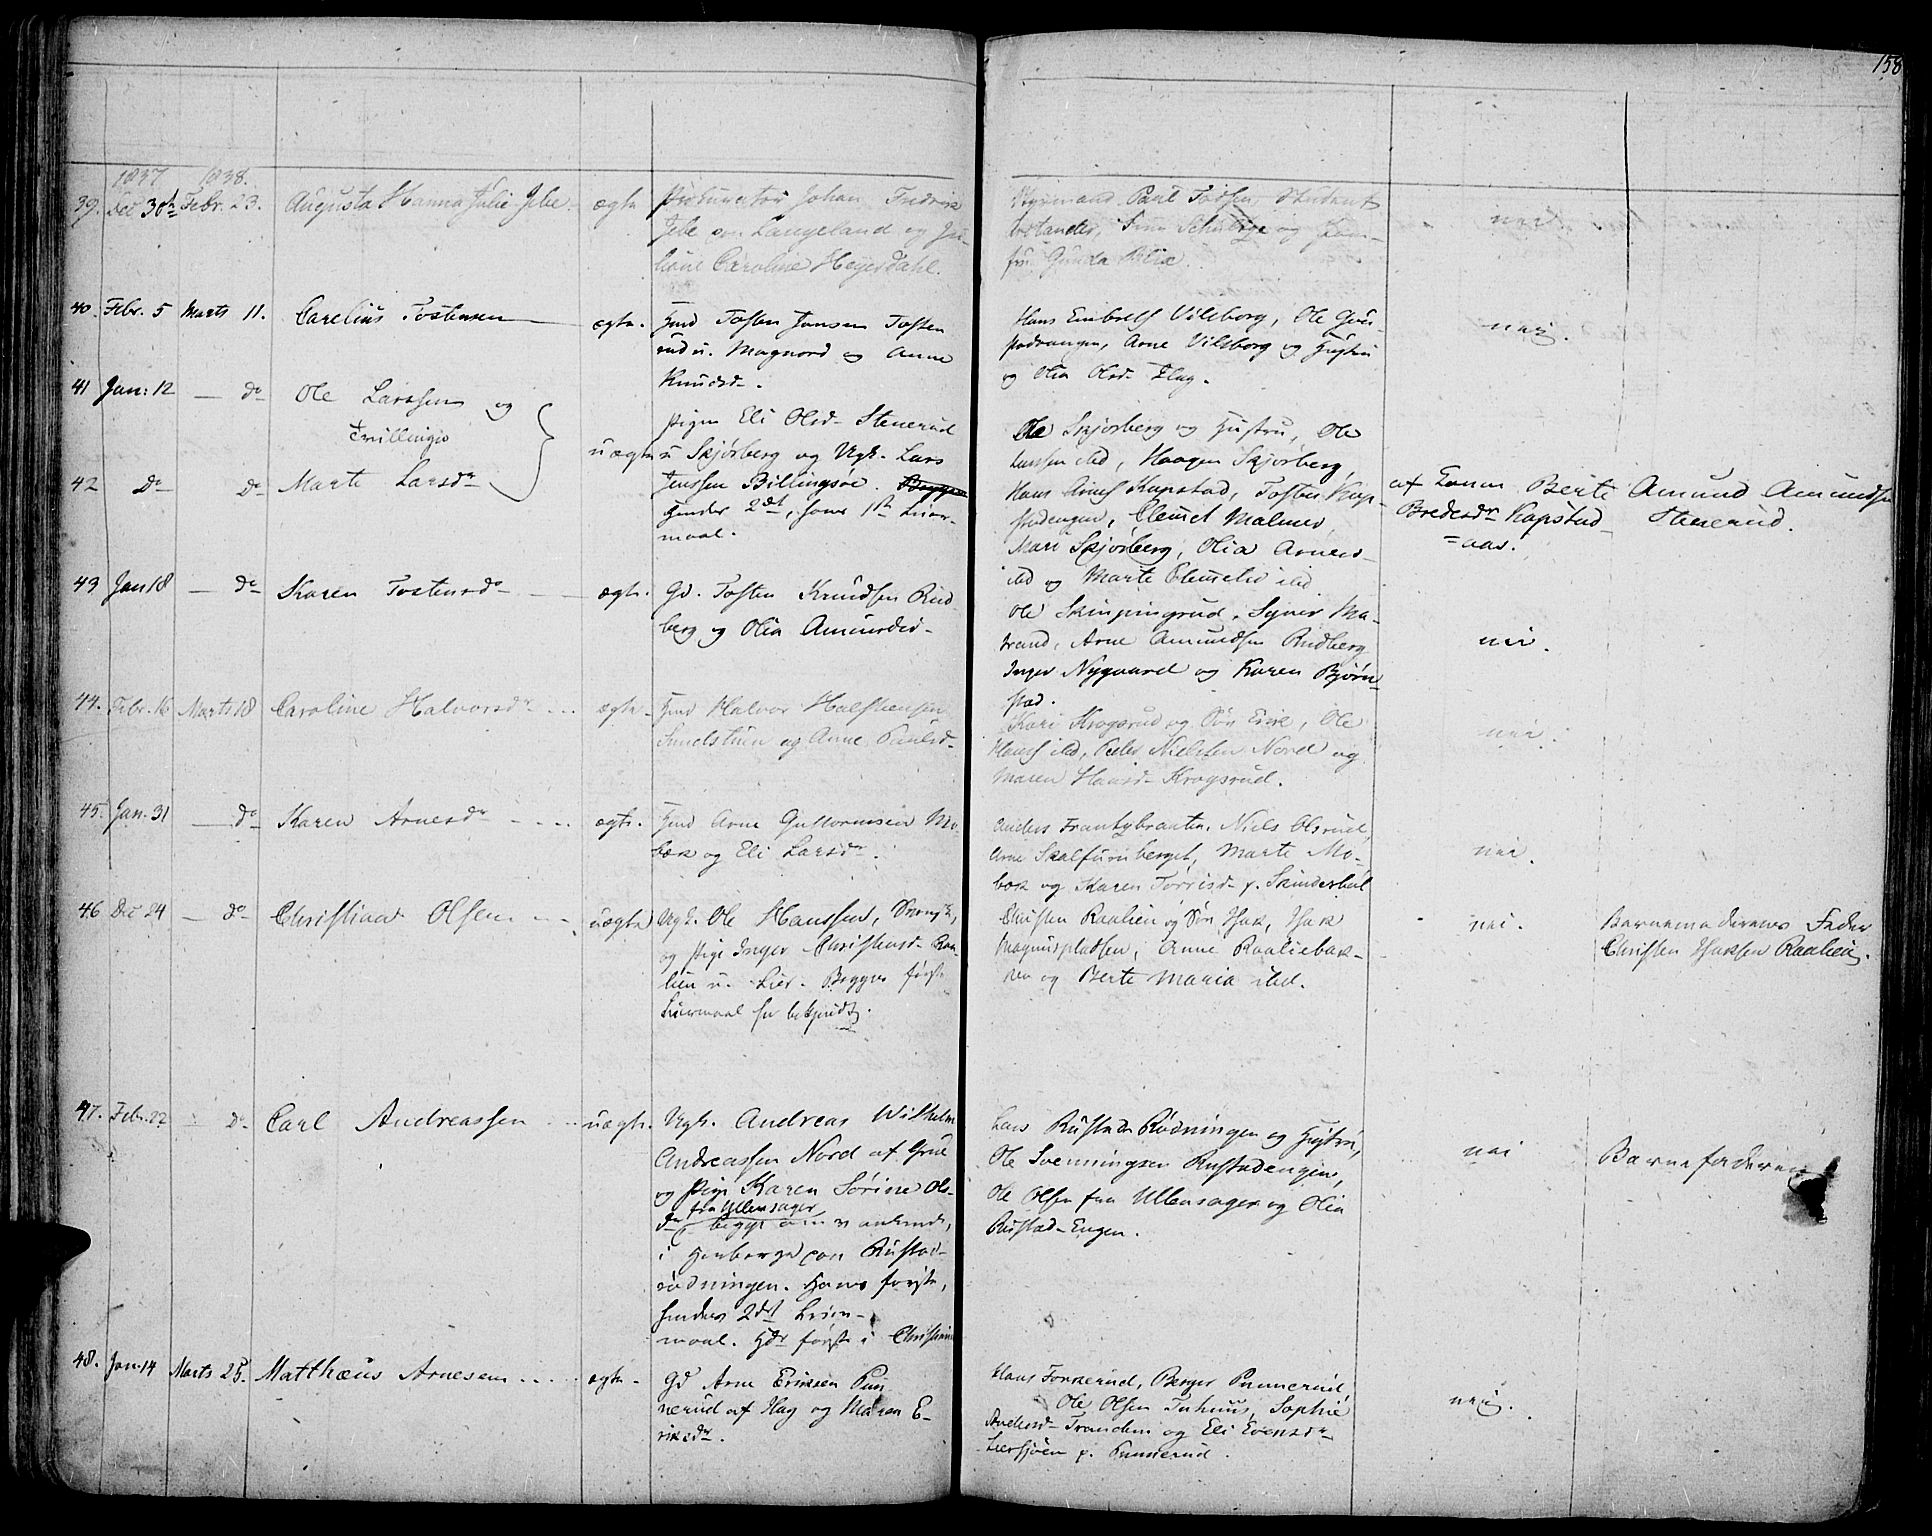 158
1837 1838.
39. Dec 30th Febr. 23. Augusta Hanna Julie Jebe. ægte Procurator Johan Fredrik
Jebe paa Langeland og Ju-
liane Caroline Heyerdahl.
Styrmand Paul Todsen, Student
Gunda
nei
40. Febr. 5 Marts 11. Carelius Tostensen ægte. Hmd Tosten Jonsen Tosten
rud u. Magnord og Anne
Knudsd.
Hans Embretss Vilsborg, Ole Gou
podvangen, Arne Vilsborg og Hustru
og Olia Olsd. Flag.
nei.
41 Jan: 12 — do Ole Larssen og
Tvillinger
42 do do Marte Larsdr
uægte Pigen Eli Olsd. Stenerud
u Skjørberg og Ugk. Lars
Jenssen Billingsøe. Begges
Hendes 2det, hans 1ste Leier-
maal.
Ole Skjørberg og Hustru, Ole
Larssen ibd, Haagen Skjørberg,
Hans Arness Kapstad, Tosten Kap-
stadengen, Clemet Malmer
Mari Skjørberg, Olia Arnesd
ibd og Marte Clemetsd ibd
af Konen Berte
Bredesdr Kapstad
Amund Amundsen
Stenerud.
43 Jan 18 — do Karen Tostensd. ægte. Gd. Tosten Knudsen Rud-
berg og Olia Amundsd.
Ole Skinpingrud, Syver Ma-
trand, Arne Amundsen Rudberg
Inger Nygaard og Karen Bjørn-
stad.
nei.
44. Febr. 16 Marts 18 Caroline Halvorsdr ægte. Hmd Halvor Halstensen
Sundstuen og Anne Paulsd.
Kari Krogsrud og Søn Erik, Ole
Hanss ibd, Peder Nielsen Nord og
Maren Hansd. Krogsrud.
nei.
45. Jan. 31 — do Karen Arnesdr ægte. Hmd Arne Guttormsen Mo-
bæk og Eli Larsdr.
Anders Frantzbraaten, Niels Olsrud,
Arne Skalfuruberget, Marte Mo-
bæk og Karen Torrisd. p. Skinderhul
nei.
46 Dec 24 — do Christian Olsen uægte Ugk. Ole Hanssen, Svensk,
og Pige Inger Christensd. Raa-
lien u. Lier. Begges første
Leiermaal
Christen Raalien og Søn Isak, Isak
Magnuspladsen, Anne Raaliebak-
ken og Berte Maria ibd.
nei.
Barnemoderens Fader
Christen Isaksen Raalien.
47. Febr. 22 — do Carl Andreassen uægte. Ugk. Andreas Wilhelm
Andreassen Nord af Grue
og Pige Karen Sørine Ols-
dr fra Ullensager
begge omvankende,
i Herberge paa Rustad-
rødningen. Hans første,
hendes 2det Leier-
maal. første i Christiania
Lars Rustad Rødningen og Hustru,
Ole Svenningsen Rustadengen,
Ole Olsen fra Ullensager og Olia
Rustad-Engen.
nei
Barnefaderen
48. Jan. 14 Marts 25. Matthæus Arnesen ægte. Gd Arne Eriksen Pun-
nerud af Hag og Maren E-
riksdr.
Hans Fonnerud, Berger Punnerud,
Ole Olsen Tuhuus, Sophie
Andersd. Tranden og Eli Evensdr
Liersjøen p. Punnerud.
nei.